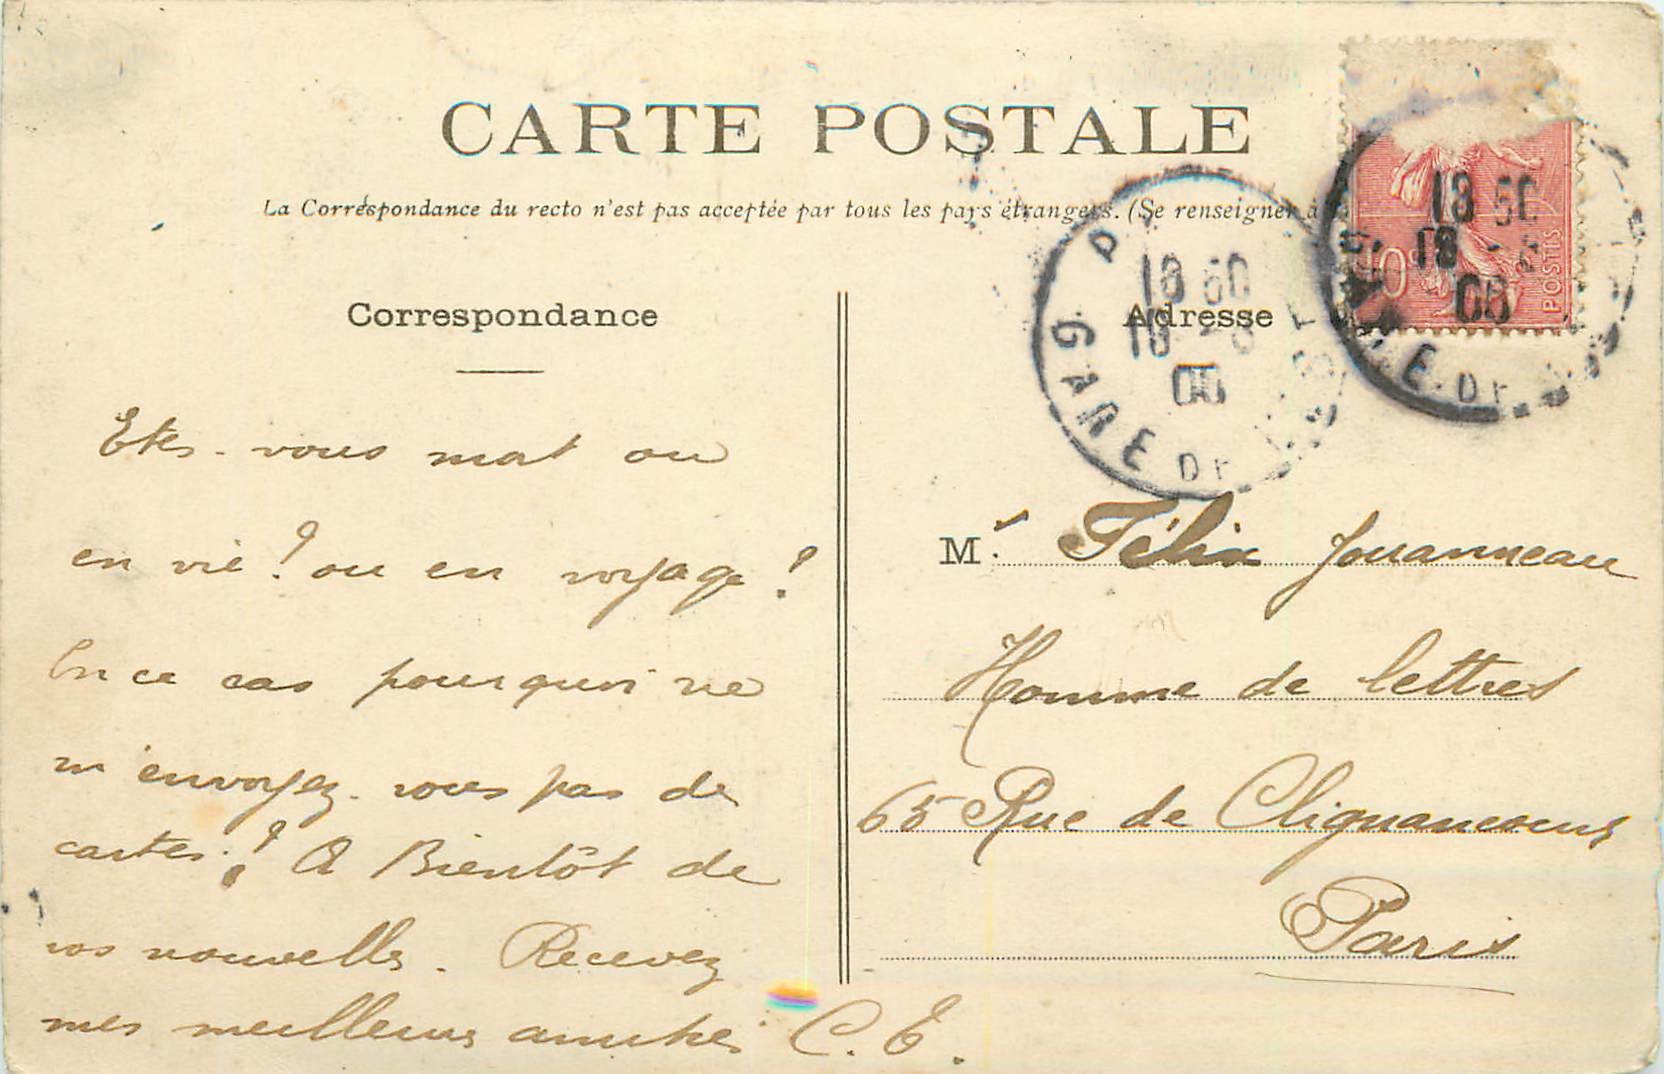 CARTE POSTALE
La Correspondance du recto n'est pas acceptée par tous les pays étrangers. (Se renseigner à
Correspondance
Etes-vous mort ou
en vie ? ou en voyage ?
En ce cas pourquoi ne
m'envoyez-vous pas de
cartes ? A Bientôt de
vos nouvelles. Recevez
mes meilleurs amitiés C. E.
Adresse
18 50
18
GARE DE
18 50
18
POSTES
E. DE
Mr. Félix Jouanneau
Homme de lettres
65 Rue de Clignancourt
Paris